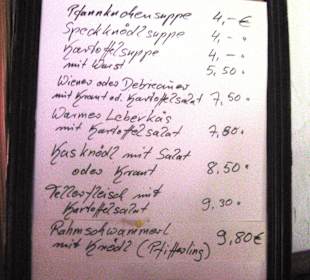 Pfannkuchensuppe 4,- €
Speckknödlsuppe 4,- "
Kartoffelsuppe 4,- "
mit Wurst 5,50 "
Wiener oder Debreciner
mit Kraut od. Kartoffelsalat 7,50 "
Warmes Leberkäs
mit Kartoffelsalat 7,80 "
Kasknödl mit Salat
oder Kraut 8,50 "
Tellerfleisch mit
Kartoffelsalat 9,30 "
Rahmschwammerl 9,80 €
mit Knödl (Pfifferling)